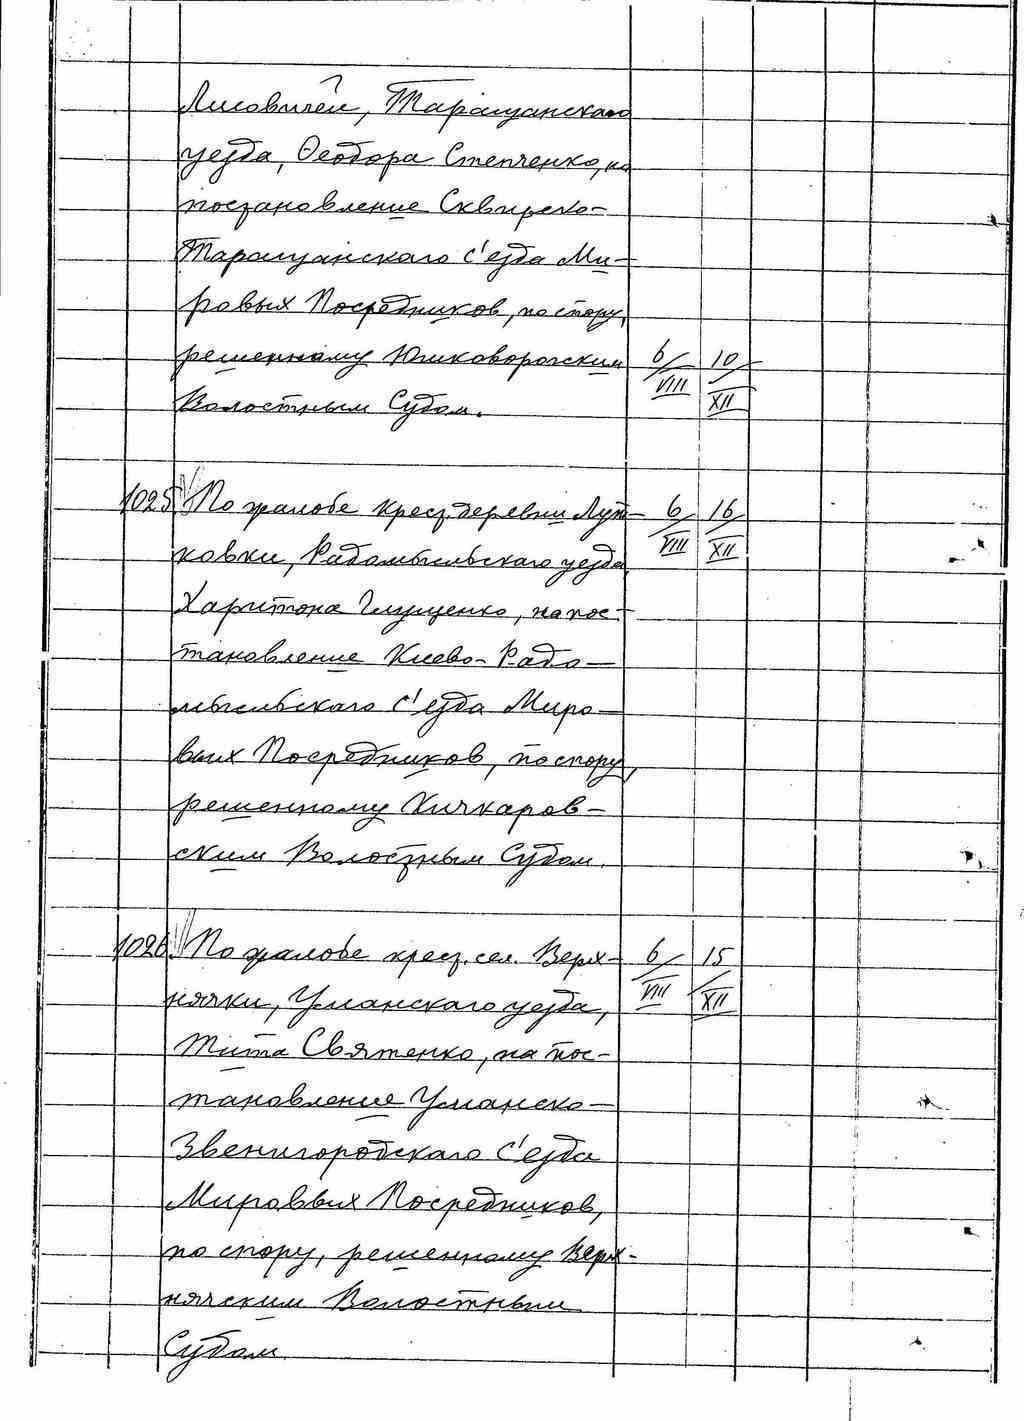 Лисовичей, Таращанскаго
уезда, Феодора Степченко, на
постановление Сквирско-
Таращанскаго с'езда Ми-
ровых Посредников, по спору,
решенному Юшковорогским
Волостным Судом.
6/VIII 10/XII
1025 По жалобе крест. деревни Лут-
ковки, Радомысльскаго уезда,
Харитона Глущенко, на пос-
тановление Киево-Радо-
мысльскаго с'езда Миро-
вых Посредников, по спору,
решенному Кичкаров-
ским Волостным Судом.
6/VIII 16/XII
1026 По жалобе крест. сел. Верх-
нячки, Уманскаго уезда,
Тита Святенко, на пос-
тановление Уманско-
Звенигородскаго с'езда
Мировых Посредников,
по спору, решенному Верх-
нячским Волостным
Судом.
6/VIII 15/XII